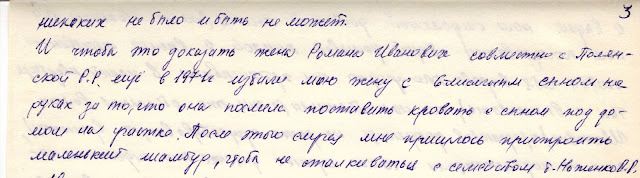 3
никаких не было и быть не может.
И чтобы это доказать жена Романа Ивановича совместно с Полян-
ской Р.Р. ещё в 1971г избили мою жену с 6-лисячным сыном на
руках за то, что она посмела поставить кровать с сыном под до-
мом на участке. После этого случая мне пришлось пристроить
маленький тамбур, чтобы не сталкиваться с семейством т. Ноженков Р.